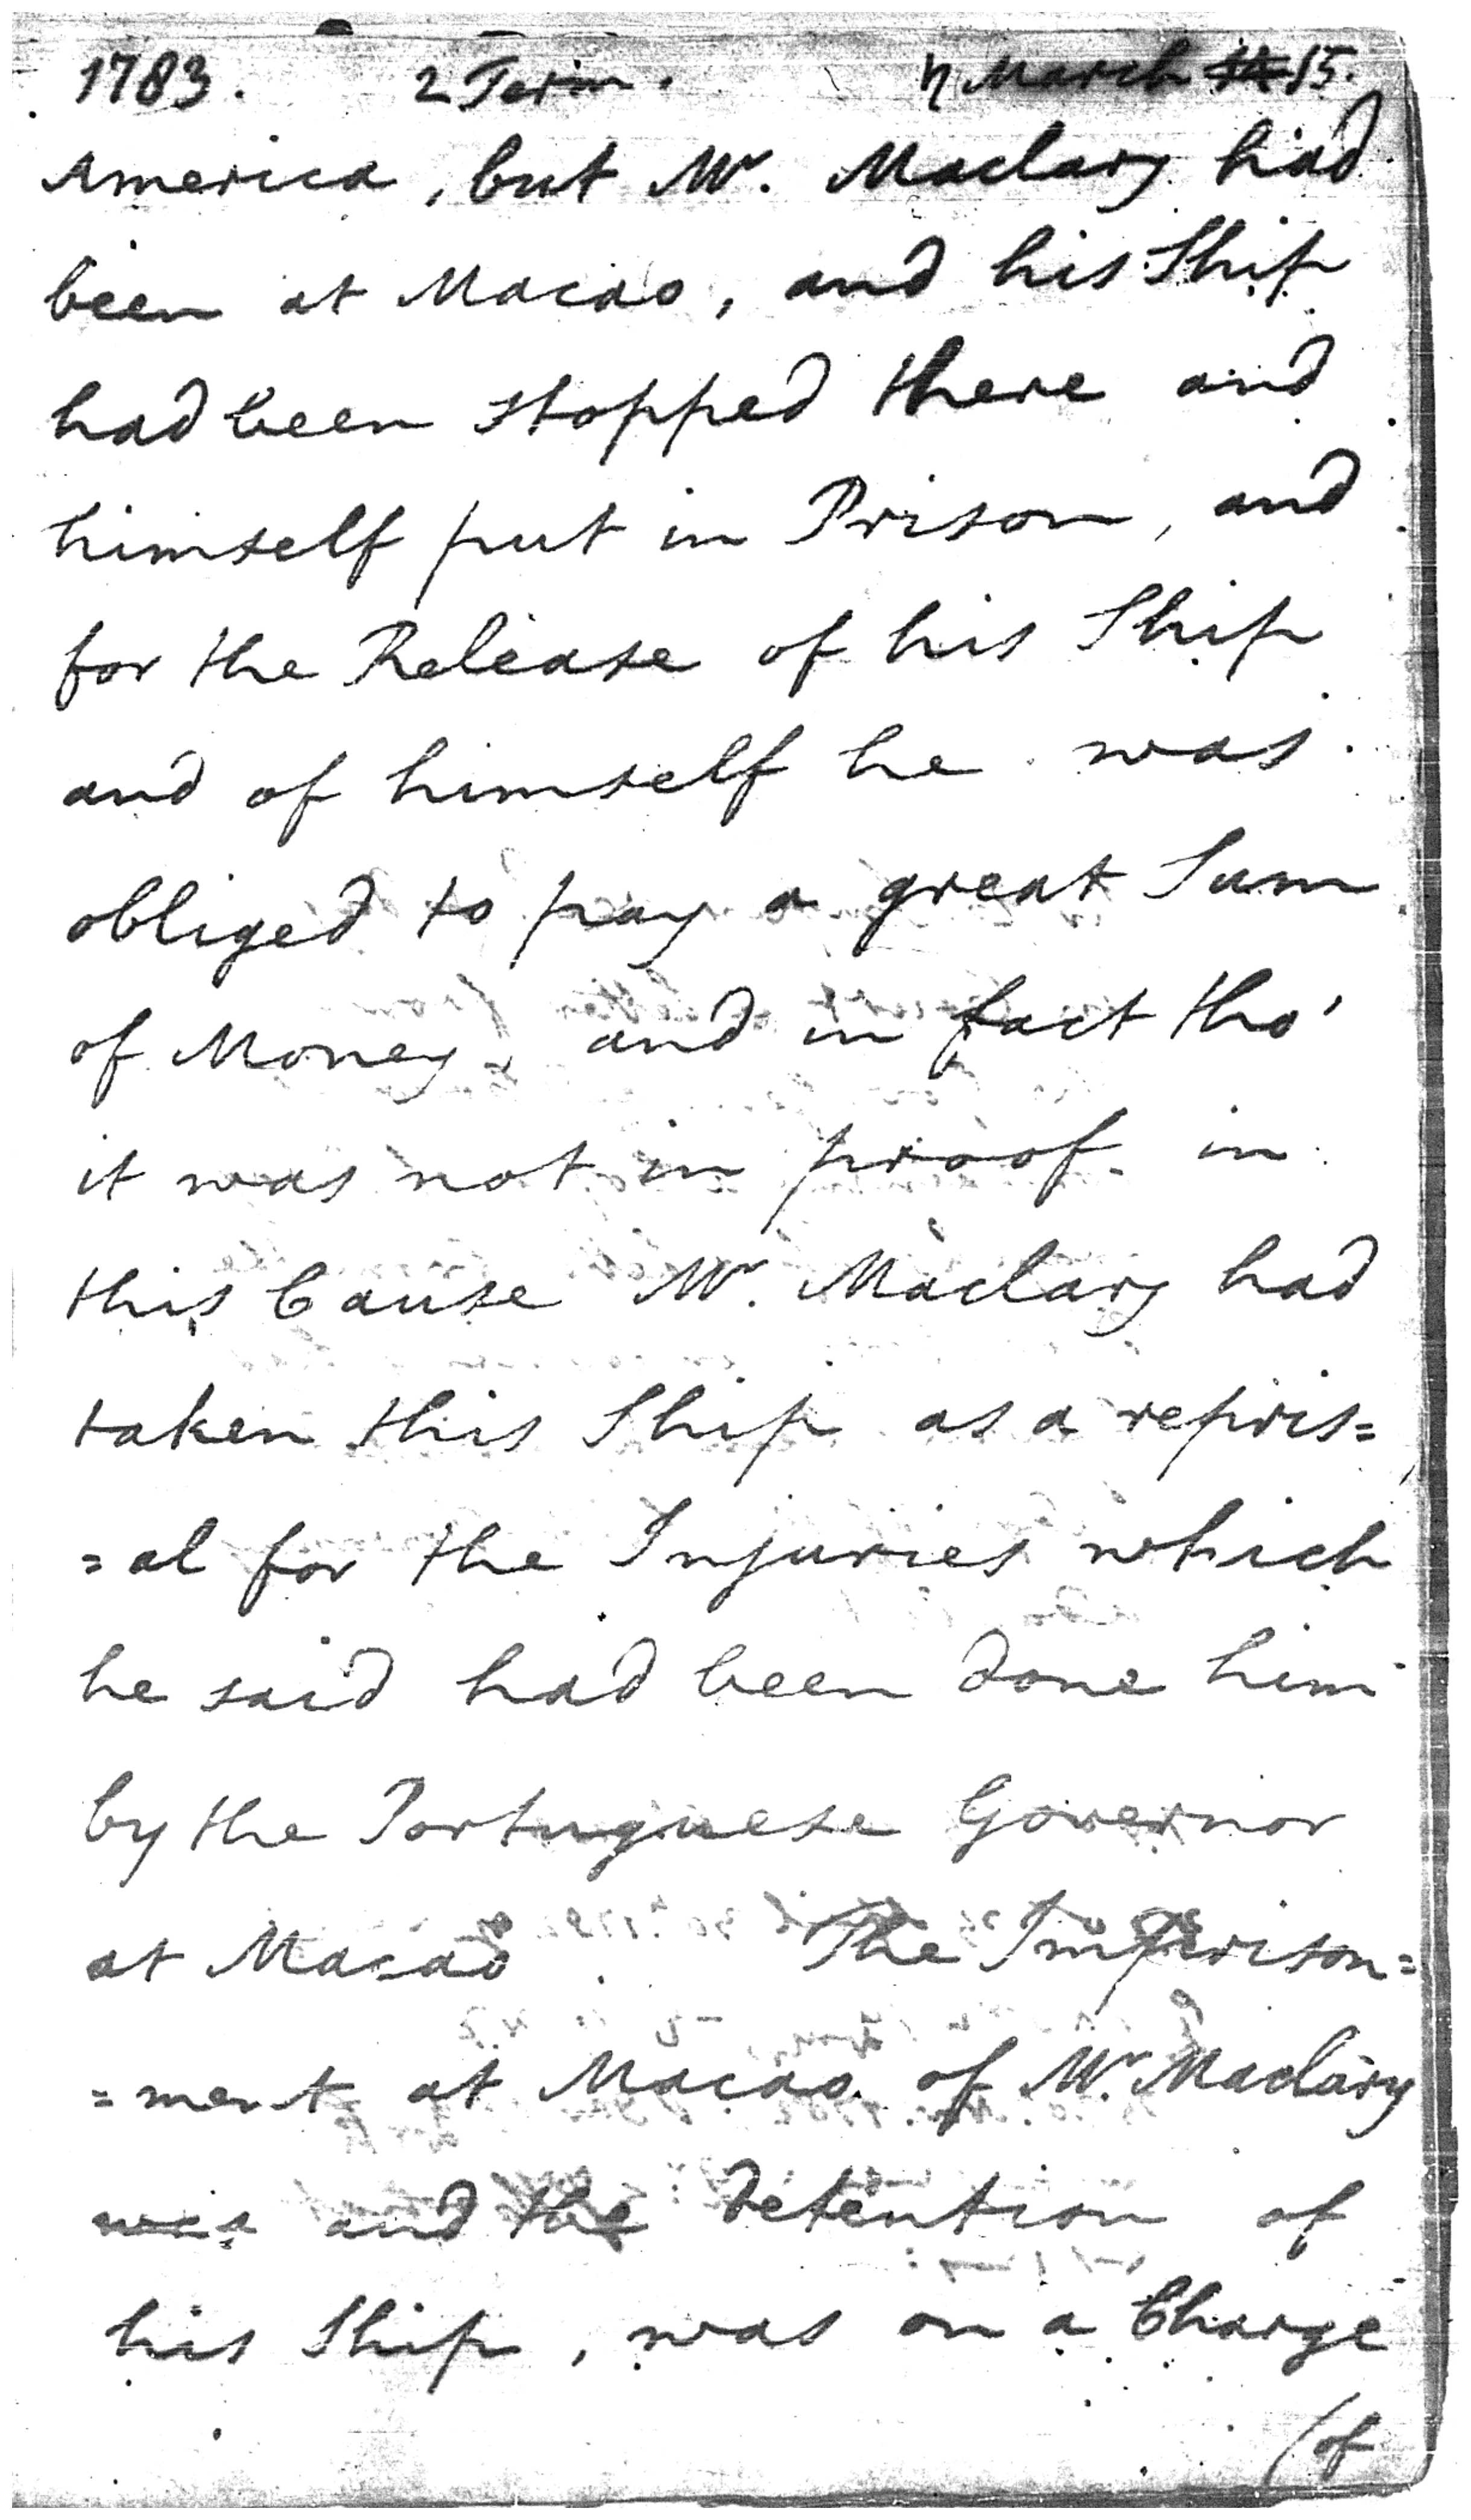 1783. 2 Term. ♄ March 15.
America, but Mr. Maclary had
been at Macao, and his Ship
had been stopped there and
himself put in Prison, and
for the Release of his Ship
and of himself he was
obliged to pay a great Sum
of Money, and in fact tho'
it was not in proof in
this Cause Mr. Maclary had
taken this Ship as a repris=
=al for the Injuries which
he said had been done him
by the Portuguese Governor
at Macao. The Imprison=
=ment at Macao of Mr. Maclary
was and the detention of
his Ship, was on a Charge
(of